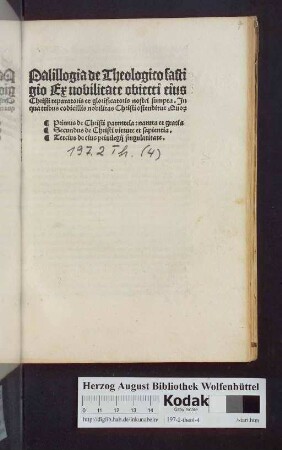 Palillogia de Theologico fasti
gio Ex nobilitate obiecti eius
Christi reparatoris et glorificatoris nostri sumpta. In
quattribus codicillis nobilitas Christi ostenditur Quorū
Primus de Christi parentela: natura et gratia
Secundus de Christi virtute et sapientia.
Tercius de eius priuilegij singularitate.
197.2 Th. (4)
Herzog August Bibliothek Wolfenbüttel
Kodak
0 11 12 13 14